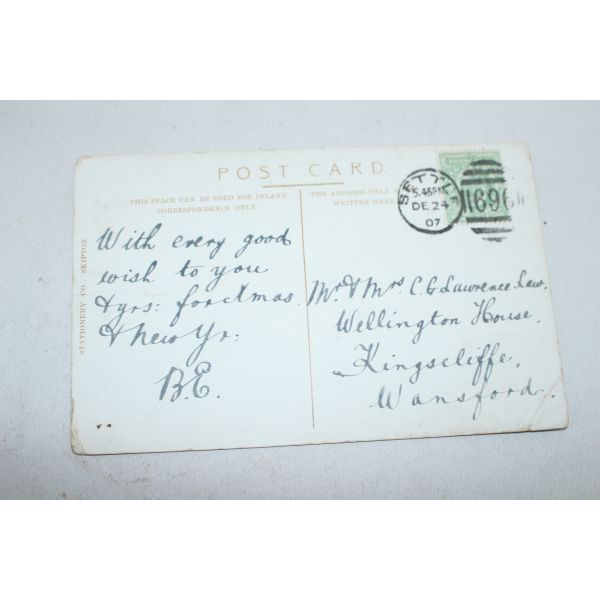 POST CARD
THIS SPACE CAN BE USED FOR INLAND
CORRESPONDENCE ONLY.
THE ADDRESS ONLY
WRITTEN HERE
STATIONERY CO., SKIPTON.
SETTLE
5.45PM
DE 24
07
With every good
wish to you
& yrs: for Xmas
& New Yr:
B.E.
Mr & Mrs C.G. Lawrence Law.
Wellington House.
Kingscliffe,
Wansford.